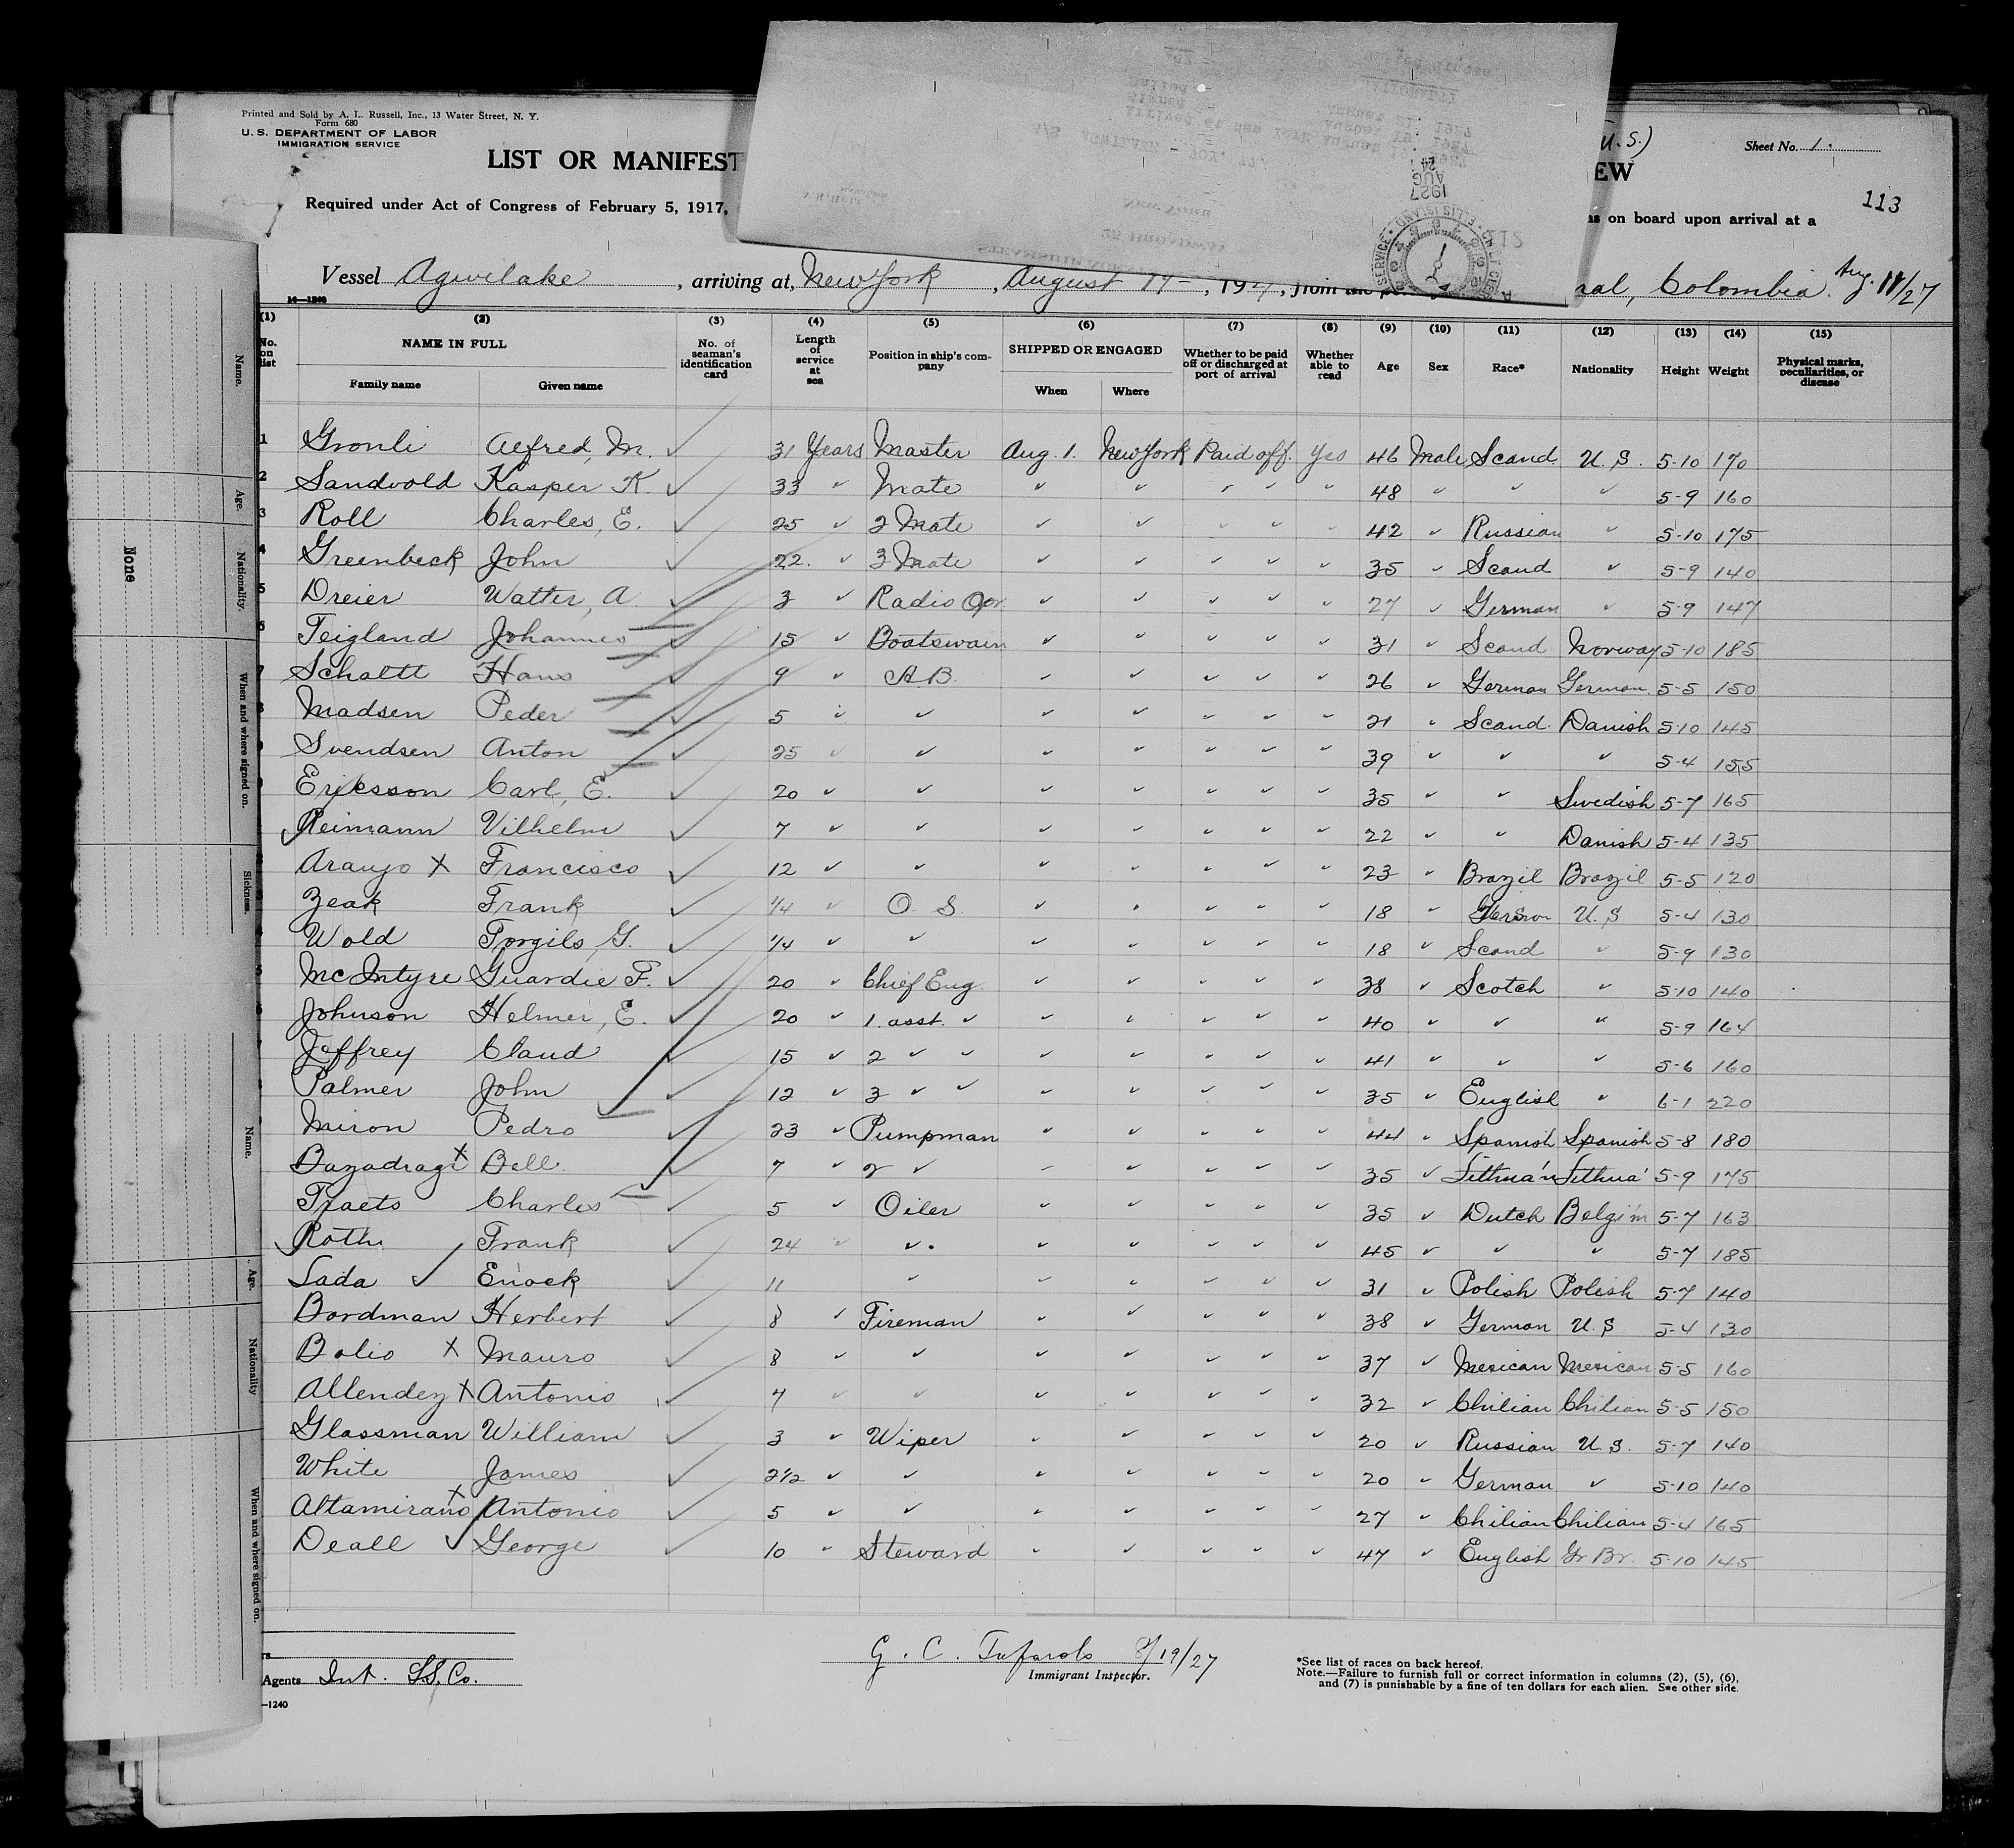 Printed and Sold by A. L. Russell, Inc., 13 Water Street, N. Y.
Form 680
U. S. DEPARTMENT OF LABOR
IMMIGRATION SERVICE
LIST OR MANIFEST
U.S.)
EW
Sheet No. 1.
113
Required under Act of Congress of February 5, 1917,
on board upon arrival at a
Vessel Agwilake, arriving at, New York, August 19, 192, from the Colombia. Aug. 11/27
14-1240
(1) (2) (3) (4) (5) (6) (7) (8) (9) (10) (11) (12) (13) (14) (15)
No. on list NAME IN FULL Family name Given name No. of seaman's identification card Length of service at sea Position in ship's company SHIPPED OR ENGAGED When Where Whether to be paid off or discharged at port of arrival Whether able to read Age Sex Race* Nationality Height Weight Physical marks, peculiarities, or disease
1 Gronli Alfred, M. 31 Years Master Aug. 1. New York Paid off. Yes 46 Male Scand. U. S. 5-10 170
2 Sandvold Kasper K. 33 " Mate " " " " " 48 " " " 5-9 160
3 Roll Charles, E. 25 " 2 Mate " " " " " 42 " Russian " 5-10 175
4 Greenbeck John 22. " 3 Mate " " " " " 35 " Scand " 5-9 140
5 Dreier Walter, A. 3 " Radio Opr. " " " " " 27 " German " 5-9 147
Teigland Johannes 15 " Boatswain " " " " " 31 " Scand Norway 5-10 185
7 Schaltt Hans 9 " A.B. " " " " " 26 " German German 5-5 150
Madsen Peder 5 " " " " " " " 21 " Scand. Danish 5-10 145
Svendsen Anton 25 " " " " " " " 39 " " " 5-4 155
Eriksson Carl, E. 20 " " " " " " " 35 " " Swedish 5-7 165
Reimann Vilhelm 7 " " " " " " " 22 " " Danish 5-4 135
Araujo X Francisco 12 " " " " " " " 23 " Brazil Brazil 5-5 120
Zeak Frank 1/4 " O. S. " " " " " 18 " U. S 5-4 130
Wold Torgils, G. 1/4 " " " " " " " 18 " Scand " 5-9 130
McIntyre Guardie F. 20 " Chief Eng. " " " " " 38 " Scotch " 5-10 140
Johnson Helmer, E. 20 " 1. asst. " " " " " " 40 " " " 5-9 164
Jeffrey Claud 15 " 2 " " " " " " " 41 " " " 5-6 160
Palmer John 12 " 3 " " " " " " " 35 " English " 6-1 220
Miron Pedro 23 " Pumpman " " " " " 44 " Spanish Spanish 5-8 180
Bazadragi X Bell. 7 " 2 " " " " " " 35 " Lithua'n Lithua' 5-9 175
Traets Charles 5 " Oiler " " " " " 35 " Dutch Belgi'm 5-7 163
Roth Frank 24 " " " " " " " 45 " " " 5-7 185
Lada Enock 11 " " " " " " 31 " Polish Polish 5-7 140
Bordman Herbert 8 " Fireman " " " " " 38 " German U.S 5-4 130
Bolio X Mauro 8 " " " " " " " 37 " Mexican Mexican 5-5 160
Allendez X Antonio 4 " " " " " " " 32 " Chilian Chilian 5-5 150
Glassman William 3 " Wiper " " " " " 20 " Russian U. S. 5-7 140
White James 2 1/2 " " " " " " " 20 " German " 5-10 140
Altamirano X Antonio 5 " " " " " " " 27 " Chilian Chilian 5-4 165
Deall George 10 " Steward " " " " " 47 " English Gr. Br. 5-10 145
Agents Int. S.S. Co.
-1240
G. C. 8/19/27
Immigrant Inspector.
*See list of races on back hereof.
Note.—Failure to furnish full or correct information in columns (2), (5), (6),
and (7) is punishable by a fine of ten dollars for each alien. See other side.
Name.
Age.
Nationality.
When and where signed on.
Sickness.
None
Name.
Age.
Nationality
When and where signed on.